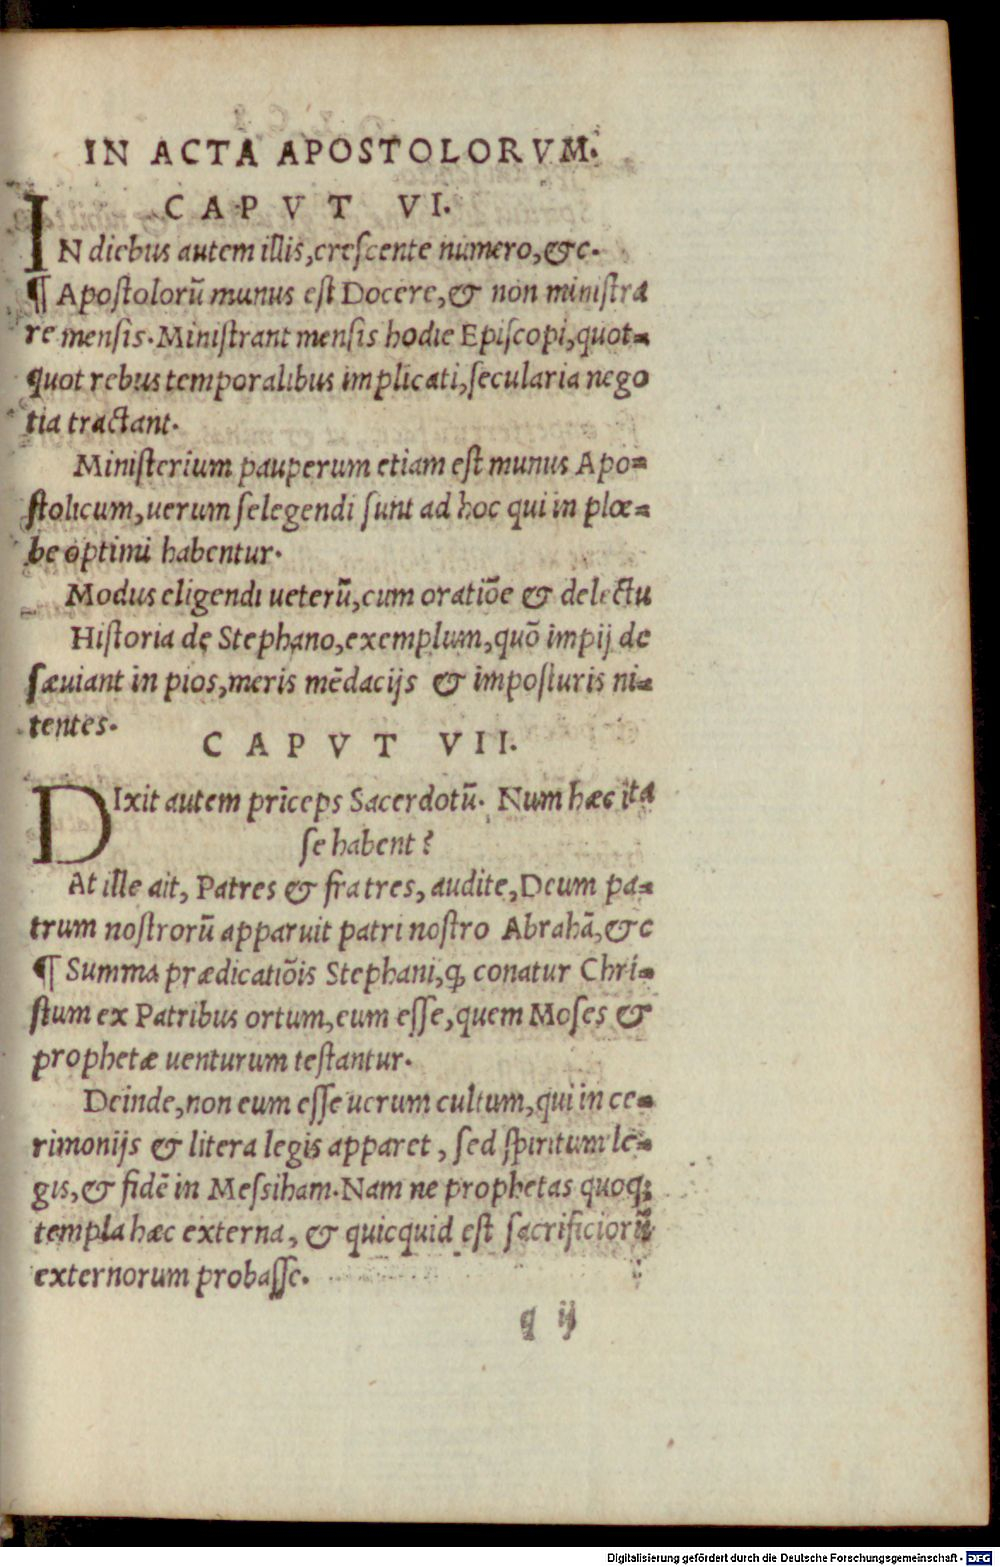 IN ACTA APOSTOLORVM.
CAPVT VI.
IN diebus autem illis, creſcente numero, &c.
¶ Apoſtolorū munus eſt Docere, & non miniſtra
re menſis. Miniſtrant menſis hodie Epiſcopi, quot-
quot rebus temporalibus implicati, ſecularia nego
tia tractant.
Miniſterium pauperum etiam eſt munus Apo-
ſtolicum, uerum ſelegendi ſunt ad hoc qui in plœ-
be optimi habentur.
Modus eligendi ueterū, cum oratiōe & delectu
Hiſtoria de Stephano, exemplum, quō impij de
ſæuiant in pios, meris mēdacijs & impoſturis ni-
tentes.
CAPVT VII.
DIxit autem prīceps Sacerdotū. Num hæc ita
ſe habent?
At ille ait, Patres & fratres, audite, Deum pa-
trum noſtrorū apparuit patri noſtro Abrahā, &c
¶ Summa prædicatiōis Stephani, ꝙ conatur Chri-
ſtum ex Patribus ortum, eum eſſe, quem Moſes &
prophetæ uenturum teſtantur.
Deinde, non eum eſſe uerum cultum, qui in ce-
rimonijs & litera legis apparet, ſed ſpiritum le-
gis, & fidē in Meſsiham. Nam ne prophetas quoq;
templa hæc externa, & quicquid eſt ſacrificiorū
externorum probaſſe.
q ij
Digitalisierung gefördert durch die Deutsche Forschungsgemeinschaft - DFG